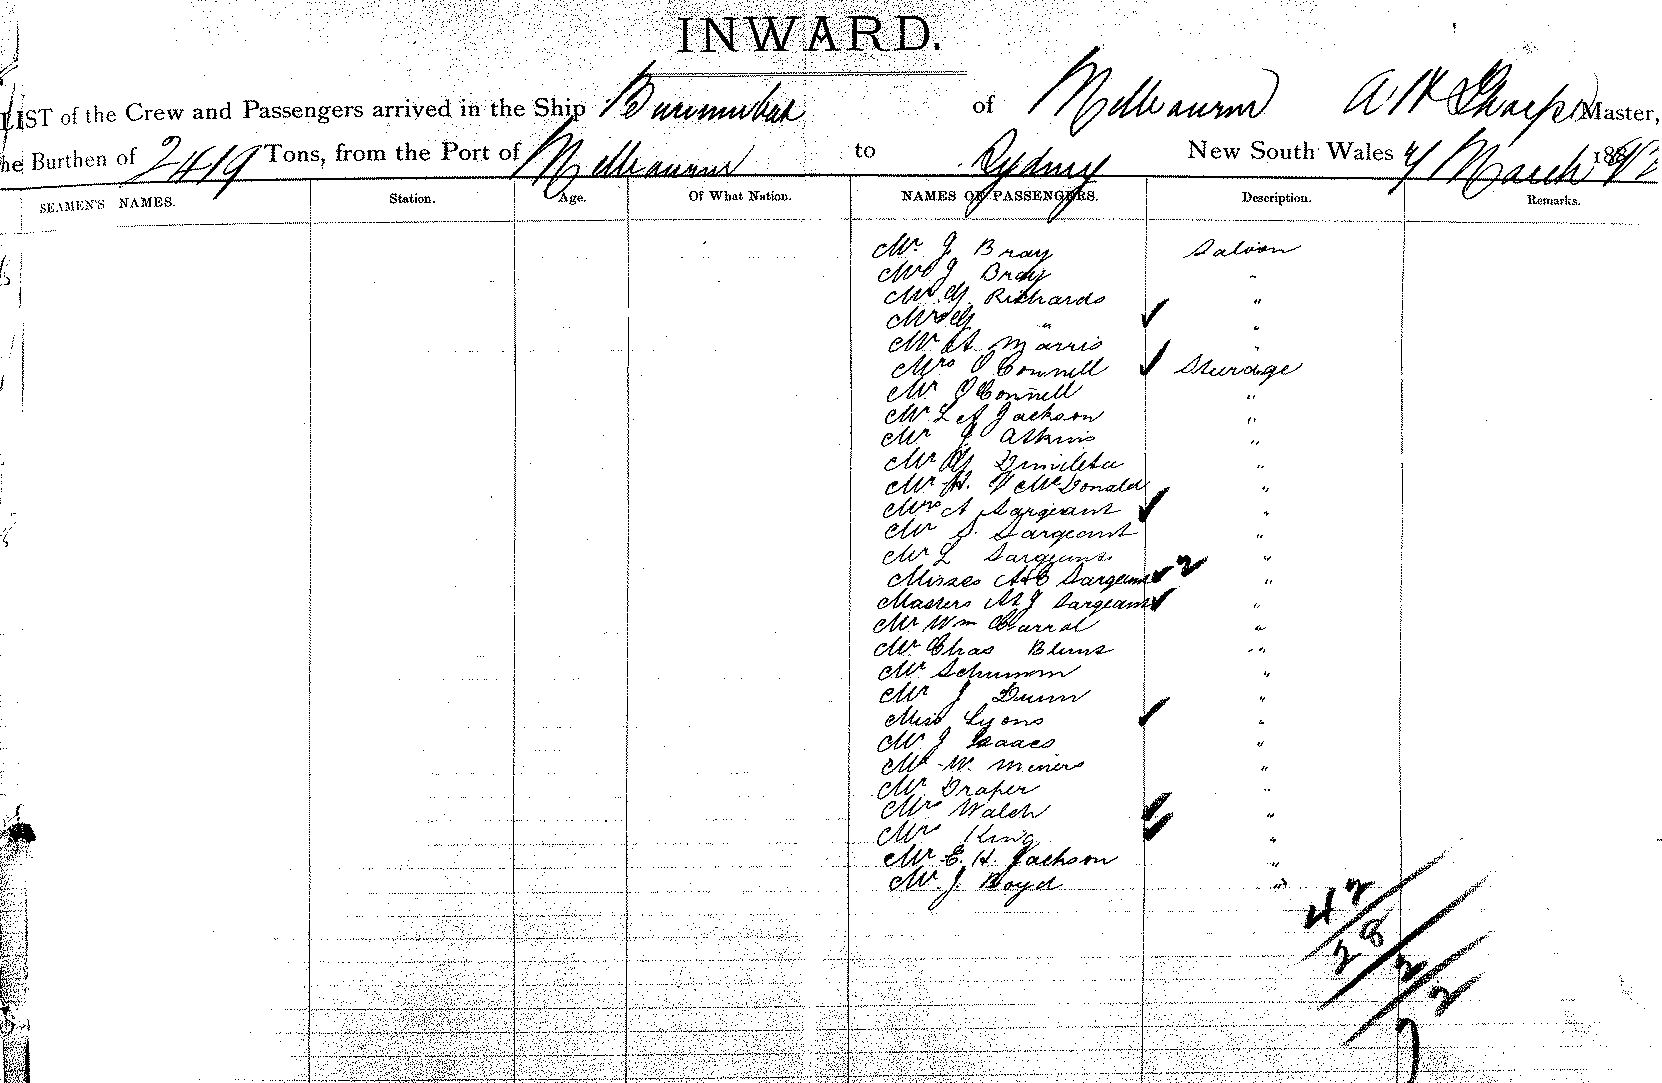 INWARD.
LIST of the Crew and Passengers arrived in the Ship Burrumbeet of Melbourne A W Sharp Master,
he Burthen of 2419 Tons, from the Port of Melbourne to Sydney New South Wales 4 March 189
SEAMEN'S NAMES. Station. Age. Of What Nation. NAMES OF PASSENGERS. Description. Remarks.
Mr. J Bray Saloon
Mrs J Bray "
Mr G Richards "
Mrs G " "
Mr A Marris "
Mrs O'Connell Steerage
Mr O'Connell "
Mr L A Jackson "
Mr J Atkins "
Mr "
Mr H. V McDonald "
Mrs A Sargeant "
Mr S. Sargeant "
Mr L Sargeant "
Misses A & C Sargeant 2 "
Masters A & J Sargeant "
Mr Wm Carral "
Mr Chas "
Mr Schumm "
Mr J Dunn "
Miss Lyons "
Mr J Isaacs "
Mr W. Miners "
Mr Draper "
Mrs Walsh "
Mrs King "
Mr E. H. Jackson "
Mr. J. Boyd "
42
28
2
2